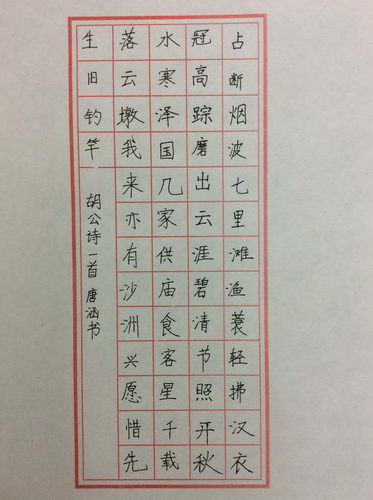 占断烟波七里滩渔蓑轻拂汉衣
冠高踪磨出云涯碧清节照开秋
水寒泽国几家供庙食客星千载
落云墩我来亦有沙洲兴愿惜先
生旧钓竿
胡公诗一首 唐涵书